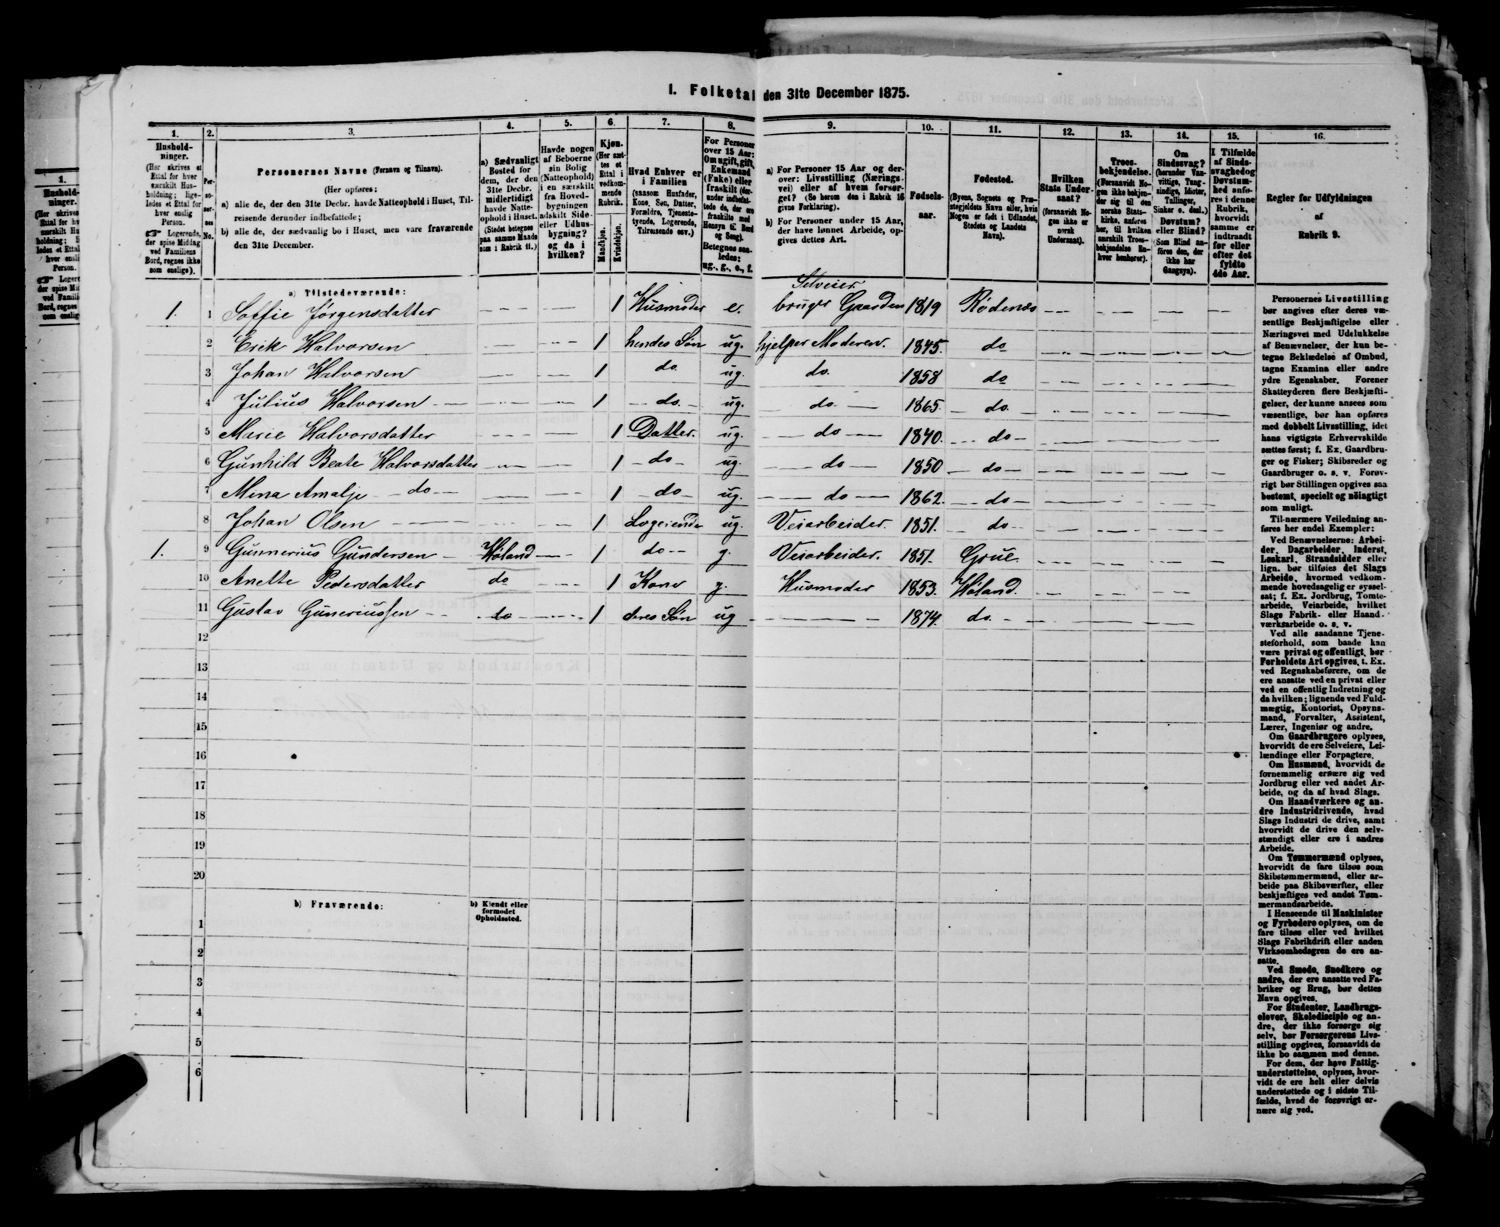 I. Folketal den 31te December 1875.
1. 2. 3. 4. 5. 6. 7. 8. 9. 10. 11. 12. 13. 14. 15. 16.
Hushold-
ninger.
(Her skrives et
Ettal for hver
særskilt Hus-
holdning; lige-
ledes et Ettal for
hver enslig
Person.
☛ Logerende,
der spise Middag
ved Familiens
Bord, regnes ikke
som enslige).
Personernes Navne (Fornavn og Tilnavn).
(Her opføres:
a) alle de, der den 31te Decbr. havde Natteophold i Huset, Til-
reisende derunder indbefattede;
b) alle de, der sædvanlig bo i Huset, men vare fraværende
den 31te December.
a) Sædvanligt
Bosted for
dem, der den
31te Decbr.
midlertidigt
havde Natte-
ophold i Huset.
(Stedet betegnes
paa samme Maade
som i Rubrik 11.)
Havde nogen
af Beboerne
sin Bolig
(Natteophold)
i en særskilt
fra Hoved-
bygningen
adskilt Side-
eller Udhus-
bygning?
og da i
hvilken?
Kjøn.
(Her sæt-
tes et
Ettal i
vedkom-
mende
Rubrik.
Mandkjøn.
Kvindekjøn.
Hvad Enhver er
i Familien
(saasom Husfader,
Kone, Søn, Datter,
Forældre, Tjeneste-
tyende, Logerende,
Tilreisende osv.)
For Personer
over 15 Aar:
Om ugift, gift,
Enkemand
(Enke) eller
fraskilt
Betegnes saa-
ledes:
ug., g., e., f.
a) For Personer 15 Aar og der-
over: Livsstilling (Nærings-
vei) eller af hvem forsør-
get? (Se herom den i Rubrik 16
givne Forklaring).
b) For Personer under 15 Aar,
der have lønnet Arbeide, op-
gives dettes Art.
Fødsels-
aar.
Fødested.
(Byens, Sognets og Præ-
stegjeldets Navn eller, hvis
Nogen er født i Udlandet,
Stedets og Landets
Navn).
Hvilken
Stats Under-
saat?
(forsaavidt No-
gen ikke er
norsk
Undersaat).
Troes-
bekjendelse.
(Forsaavidt No-
gen ikke bekjen-
der sig til den
norske Stats-
kirke, anføres
her, til hvilken
særskilt Troes-
bekjendelse En-
hver henhører).
Om
Sindssvag?
(herunder Van-
vittige, Tung-
sindige, Idioter,
Tullinger,
Sinker o. desl.)
Døvstum?
eller Blind?
(Som Blind an-
føres den, der
ikke har
Gangsyn).
I Tilfælde
af Sinds-
svaghed og
Døvstum-
hed anfø-
res i denne
Rubrik,
hvorvidt
samme er
indtraadt
før eller
efter det
fyldte
4de Aar.
Regler for Udfyldningen
af
Rubrik 9.
a) Tilstedeværende:
Selveier
1. 1 Soffie Jørgensdatter 1 Husmoder e. bruger Gaarden 1819 Rødenæs
2 Erik Halvorsen 1 hendes Søn ug. hjelper Moderen. 1845. do
3 Johan Halvorsen 1 do. ug. do. 1858 do
4 Julius Halvorsen 1 do. ug. do. 1865. do.
5 Marie Halvorsdatter 1 Datter. ug. do 1840. do
6 Gunhild Beate Halvorsdatter 1 do ug. do 1850 do
7 Mina Amalje do 1 do ug. do 1862. do
8 Johan Olsen 1 Logerende ug. Veiarbeider. 1851. do
1. 9 Gunnerius Gundersen Høland 1 do g. Veiarbeider. 1851. Grue
10 Anette Pedersdatter do 1 Kone g. Husmoder 1853. Høland.
11 Gustav Gunneriussen do 1 deres Søn ug 1874. do.
12
13
14
15
16
17
18
19
20
b) Fraværende:
b) Kjendt eller
formodet
Opholdssted.
1
2
3
4
5
6
Personernes Livsstilling
bør angives efter deres væ-
sentlige Beskjæftigelse eller
Næringsvei med Udelukkelse
af Benævnelser, der kun be-
tegne Beklædelse af Ombud,
tagne Examina eller andre
ydre Egenskaber. Forener
Skatteyderen flere Beskjæfti-
gelser, der kunne ansees som
væsentlige, bør han opføres
med dobbelt Livsstilling, idet
hans vigtigste Erhvervskilde
sættes først; f. Ex. Gaardbru-
ger og Fisker; Skibsreder og
Gaardbruger o. s. v. Forøv-
rigt bør Stillingen opgives saa
bestemt, specielt og nöiagtigt
som muligt.
Til nærmere Veiledning an-
føres her endel Exempler:
Ved Benævnelserne: Arbei-
der, Dagarbeider, Inderst,
Løskarl, Strandsidder eller
lign. bør tilføies det Slags
Arbeide, hvormed vedkom-
mende hovedsagelig er syssel-
sat; f. Ex. Jordbrug, Tomte-
arbeide, Veiarbeide, hvilket
Slags Fabrik- eller Haand-
værksarbeide o. s. v.
Ved alle saadanne Tjene-
steforhold, som baade kan
være privat og offentligt, bør
Forholdets Art opgives, t. Ex.
ved Regnskabsførere, om de
ere ansatte ved en privat eller
ved en offentlig Indretning og
da hvilken; lignende ved Fuld-
mægtig, Kontorist, Opsyns-
mand, Forvalter, Assistent,
Lærer, Ingeniør og andre.
Om Gaardbrugere oplyses,
hvorvidt de ere Selveiere, Lei-
lændinge eller Forpagtere.
Om Husmænd, hvorvidt de
fornemmelig ernære sig ved
Jordbrug eller ved andet Ar-
beide, og da af hvad Slags.
Om Haandværkere og an-
dre Industridrivende, hvad
Slags Industri de drive, samt
hvorvidt de drive den selv-
stændigt eller ere i andres
Arbeide.
Om Tømmermænd oplyses,
hvorvidt de fare tilsøs som
Skibstømmermænd, eller ar-
beide paa Skibsværfter, eller
beskjæftiges ved andet Tøm-
mermandsarbeide.
I Henseende til Maskinister
og Fyrbødere oplyses, om de
fare tilsøs eller ved hvilket
Slags Fabrikdrift eller anden
Virksomhedsgren de ere an-
satte.
Ved Smede, Snedkere og
andre, der ere ansatte ved Fa-
briker og Brug, bør dettes
Navn opgives.
For Studenter, Landbrugs-
elever, Skoledisciple og an-
dre, der ikke forsørge sig
selv, bør Forsørgerens Livs-
stilling opgives, forsaavidt de
ikke bo sammen med denne.
For dem, der have Fattig-
understøttelse, oplyses, hvor-
vidt de ere helt eller delvis
understøttede og i sidste Til-
fælde, hvad de forøvrigt er-
nære sig ved.